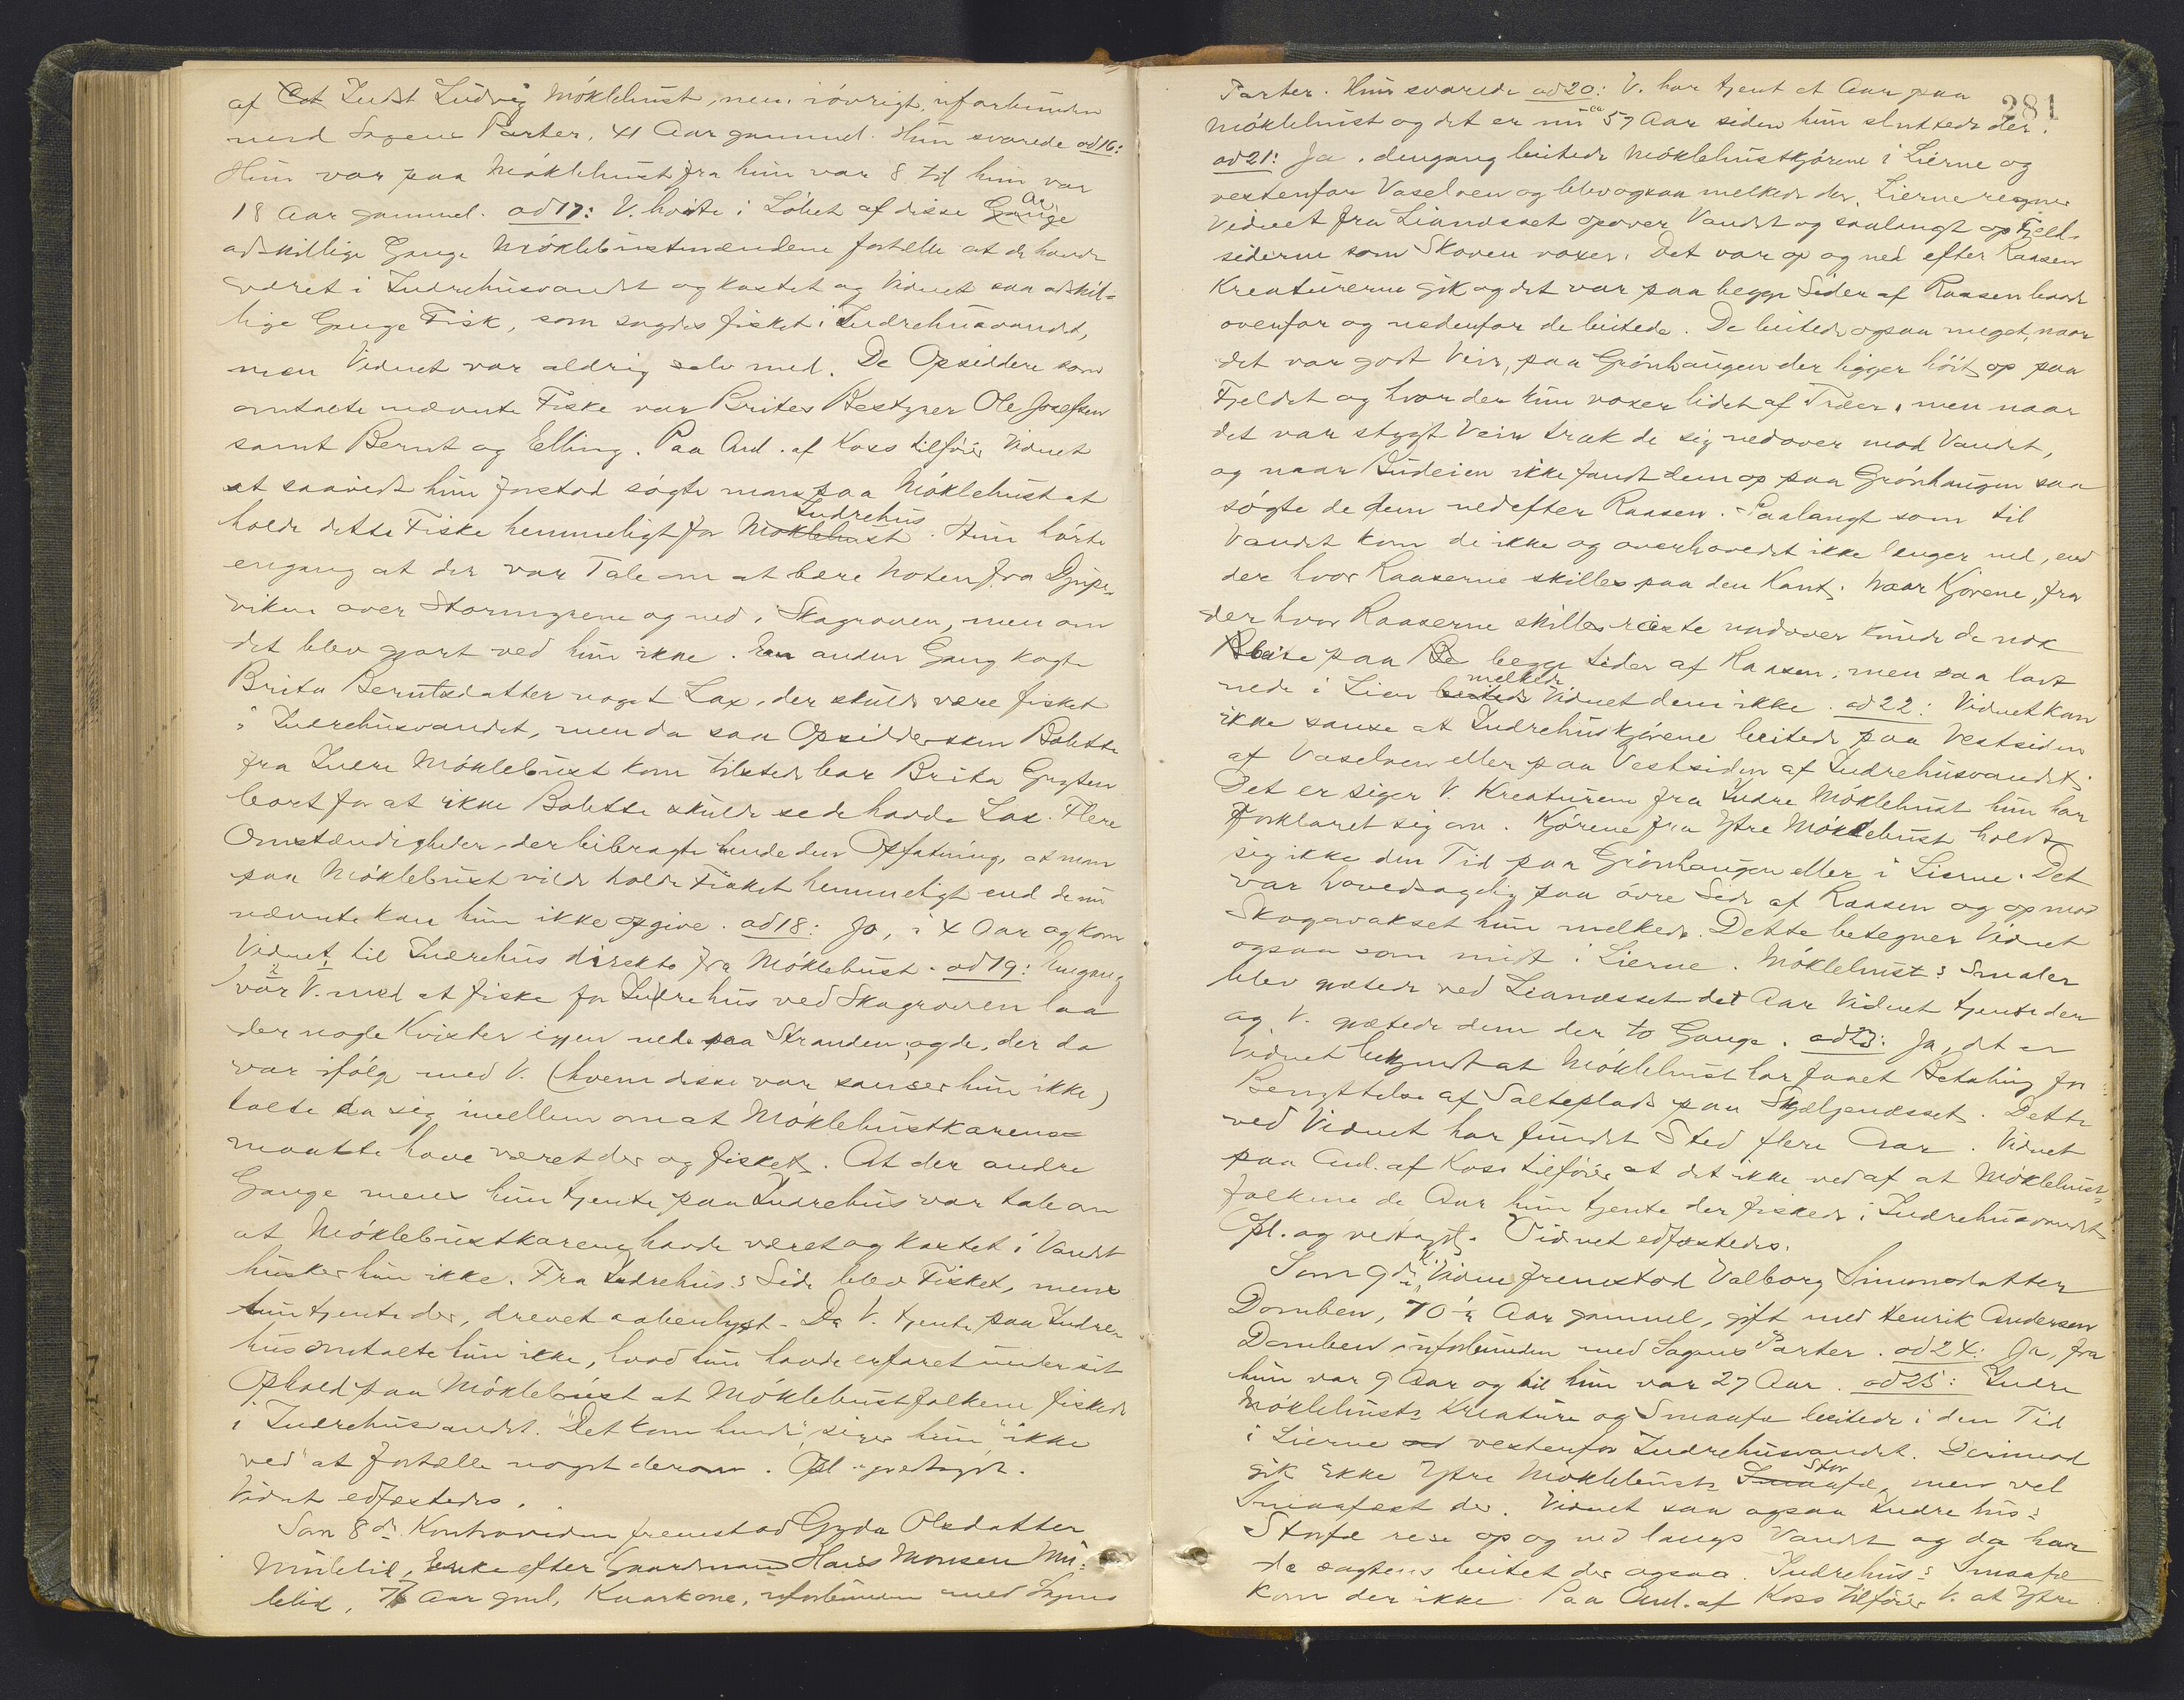 af Indst Ludvig Möklebust, men iövrigt uforbunden
med Sagens Parter, 41 Aar gammel. Hun svarede ad 16:
Hun var paa Möklebust fra hun var 8 til hun var
18 Aar gammel. ad 17: V. hörte i Löbet af disse Aar
adskillige Gange Möklebustmændene fortælle at de havde
været i Indrehusvandet og kastet og Vidnet saa adskil-
lige Gange Fisk, som sagdes fisket i Indrehusvandet,
men Vidnet var aldrig selv med. De Opsiddere som
omtalte nævnte Fiske var Brites Bestyrer Ole Josefsen
samt Bernt og Elling. Paa Anl. af Koss tilföier Vidnet
at saavidt hun forstod sögte man paa Möklebust at
holde dette Fiske hemmeligt for Möklebust Indrehus. Hun hörte
engang at der var Tale om at bære Noten fra Djupe-
viken over Stormyrene og ned i Skagroven, men om
det blev gjort ved hun ikke. En anden Gang kogte
Brita Berntsdatter noget Lax, der skulde være fisket
i Indrehusvandet, men da saa Opsiddersken Bolette
fra Indre Möklebust kom tilstede bar Brita Gryten
bort for at ikke Bolette skulde se de havde Lax. Flere
Omstændigheder der bibragte hende den Opfatning, at man
paa Möklebust vilde holde Fisket hemmeligt end de nu
nævnte kan hun ikke opgive. ad 18: Ja, i 4 Aar og kom
Vidnet til Indrehus direkte fra Möklebust. ad 19: Engang
var V. med at fiske for Indrehus ved Skagroven laa
der nogle Kvister igjen nede paa Stranden, og de, der da
var ifölge med V. (hvem disse var sanser hun ikke)
talte da sig imellem om at Möklebustkarene
maatte have været der og fisket. At der andre
Gange mens hun tjente paa Indrehus var tale om
at Möklebustkarene havde været og kastet i Vandet
husker hun ikke. Fra Indrehus's Side blev Fisket, mens
hun tjente der, drevet aabenlyst. Da V. tjente paa Indre-
hus omtalte hun ikke, hvad hun havde erfaret under sit
Ophold paa Möklebust at Möklebustfolkene fiskede
i Indrehusvandet. "Det kom hende", siger hun "ikke
ved" at fortælle noget derom. Opl. og vedtaget.
Vidnet edfæstedes.
Som 8de Kontravidne fremstod Gyda Olsdatter
Myklelid, Enke efter Gaardmand Hans Monsen
77 Aar gml, Kaarkone, uforbunden med Sagens
281
Parter. Hun svarede ad 20: V. har tjent et Aar paa
Möklebust og det er nu ca 57 Aar siden hun sluttede der.
ad 21: Ja. dengang beitede Möklebustkjörene i Lierne og
vestenfor Vaselven og blev ogsaa melkede der. Lierne regner
Vidnet fra Lianæsset opover Vandet og saalangt op Fjeld-
siderne som Skoven voxer. Det var op og ned efter Raasen
Kreaturerne gik og det var paa begge Sider af Raasen baade
ovenfor og nedenfor de beitede. De beitede ogsaa meget, naar
det var godt Veir, paa Grönhaugen der ligger höit op paa
Fjeldet og hvor der kun voxer lidet af Træer, men naar
det var stygt Veir træk de sig nedover mod Vandet,
og naar Budeien ikke fandt dem op paa Grönhaugen saa
sögte de dem nedefter Raasen. Saalangt som til
Vandet kom de ikke og overhovedet ikke længer ned, end
der hvor Raaserne skilles paa den Kant. Naar Kjörene, fra
der hvor Raaserne skilles reiste nedover kunde de nok
beite paa begge Sider af Raasen, men saa lavt
nede i Lien beitede melkede Vidnet dem ikke. ad 22: Vidnet kan
ikke sanse at Indrehuskjörene beitede paa Vestsiden
af Vaselven eller paa Vestsiden af Indrehusvandet.
Det er siger V. Kreaturene fra Indre Möklebust hun har
forklaret sig om. Kjörene fra Ytre Möklebust holdt
sig ikke den Tid paa Grönhaugen eller i Lierne. Det
var hovedsagelig paa övre Side af Raasen og op mod
Skogavakset hun melkede. Dette betegner Vidnet
ogsaa som midt i Lierne. Möklebust's Smaler
blev gjætede ved Lianæsset det Aar Vidnet tjente der
og V. gjætede dem der to Gange. ad 23: Ja, det er
Vidnet bekjendt at Möklebust har faaet Betaling for
Benyttelse af Salteplads paa Skjeljenæsset. Dette
ved Vidnet har fundet Sted flere Aar. Vidnet
paa Anl. af Koss tilföier at det ikke ved af at Möklebust-
folkene de Aar hun tjente der fiskede i Indrehusvandet.
Opl. og vedtaget. Vidnet edfæstedes.
Som 9de Vidne fremstod Valborg Simonsdatter
Domben, 70½ Aar gammel, gift med Henrik Andersen
Domben uforbunden med Sagens Parter. ad 24: Ja, fra
hun var 9 Aar og til hun var 27 Aar. ad 25: Indre
Möklebusts Kreature og Smaafæ beitede i den Tid
i Lierne vestenfor Indrehusvandet. Derimod
gik ikke Ytre Möklebusts Smaafæ Stor, men vel
Smaafæet der. Vidnet saa ogsaa Indrehus's
Storfæ reise op og ned langs Vandet og da har
de sagtens beitet der ogsaa. Indrehus's Smaafæ
kom der ikke. Paa Anl. af Koss tilföier V. at Ytre